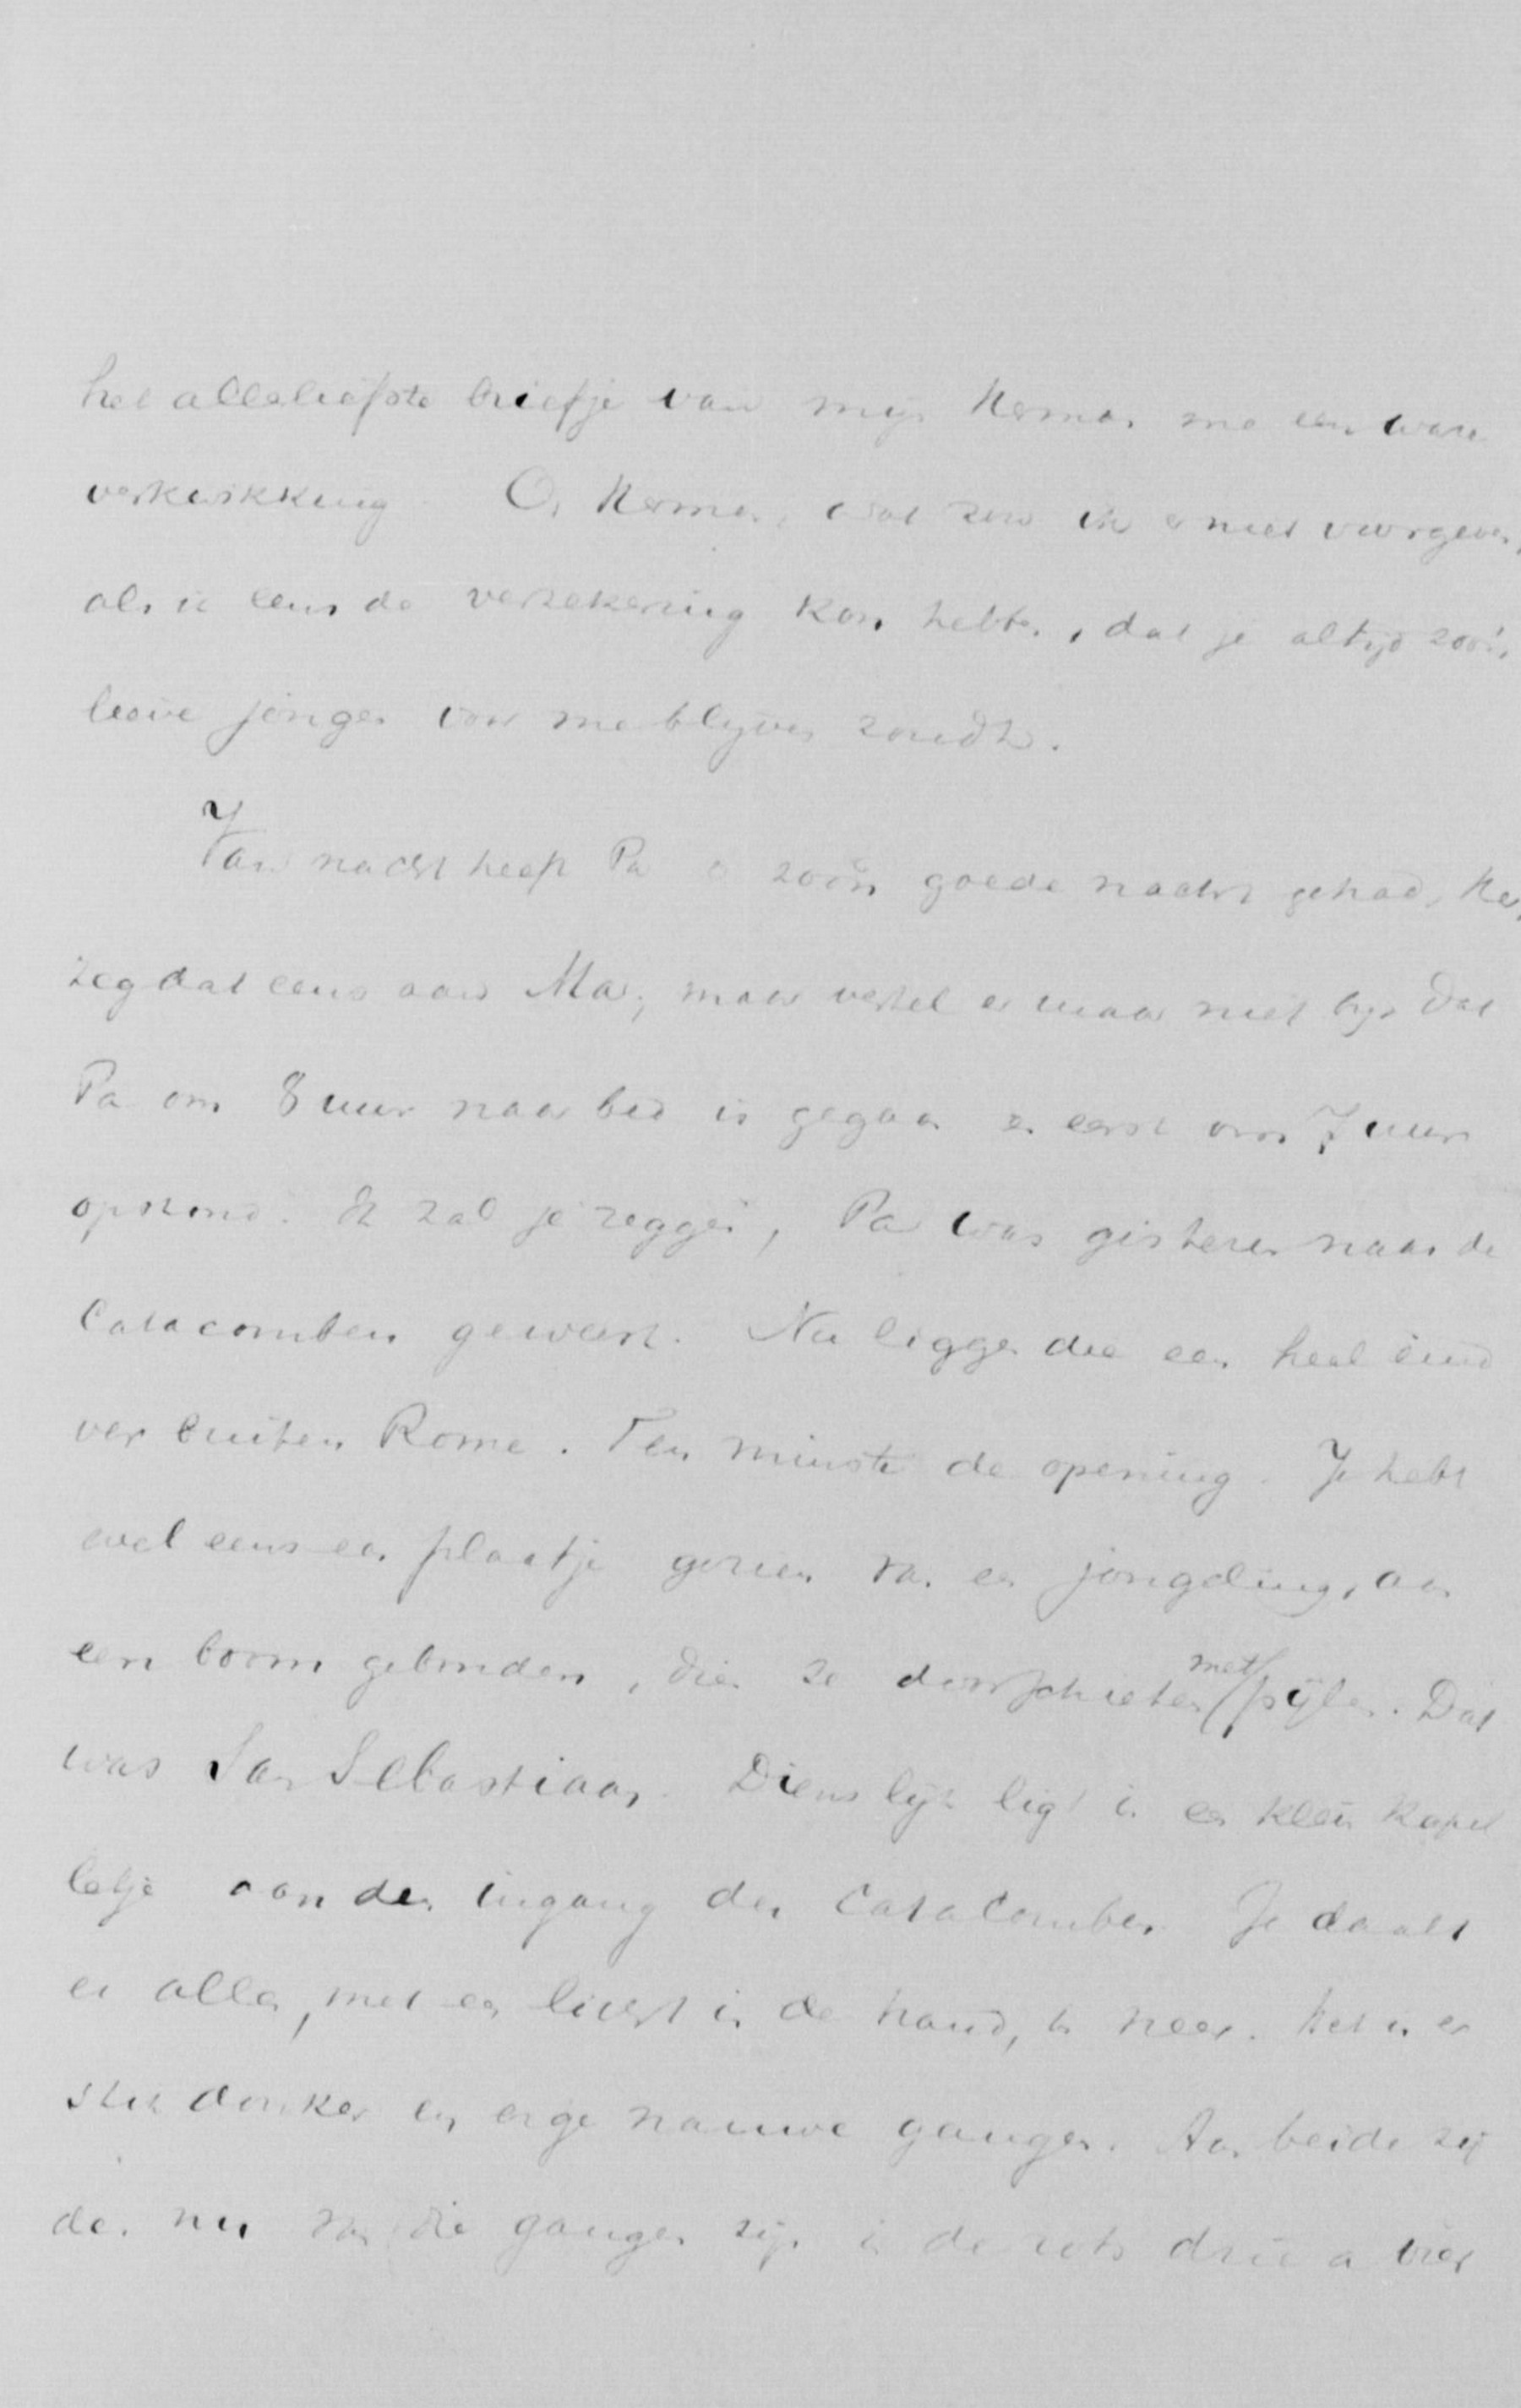 het alleliefste briefje van mijn Herman me een ware
verkwikking. O, Herman, wat zou ik er niet voor geven,
als ik eens de verzekering kon hebben, dat je altijd zoo'n
lieve jongen voor me blijven zoudt.
Van nacht heeft Pa zoo'n goede nacht gehad, Her,
zeg dat eens aan Ma; maar vertel er maar niet bij dat
Pa om 8 uur naar bed is gegaan en eerst om 7 uur
opstond. Ik zal je zeggen, Pa was gisteren naar de
Catacomben geweest. Nu liggen die een heel eind
ver buiten Rome. Ten minste de opening. Je hebt
wel eens een plaatje gezien van een jongeling, aan
een boom gebonden, dien ze doorschieten met pijlen. Dat
was San Sebastiaan. Diens lijk ligt in een klein kapel
letje aan den ingang der Catacomben. Je daalt
er allen, met een licht in de hand, in neer. Het is er
stik donker en enge nauwe gangen. Aan beide zij
den nu van die gangen zijn in de rots drie a vier